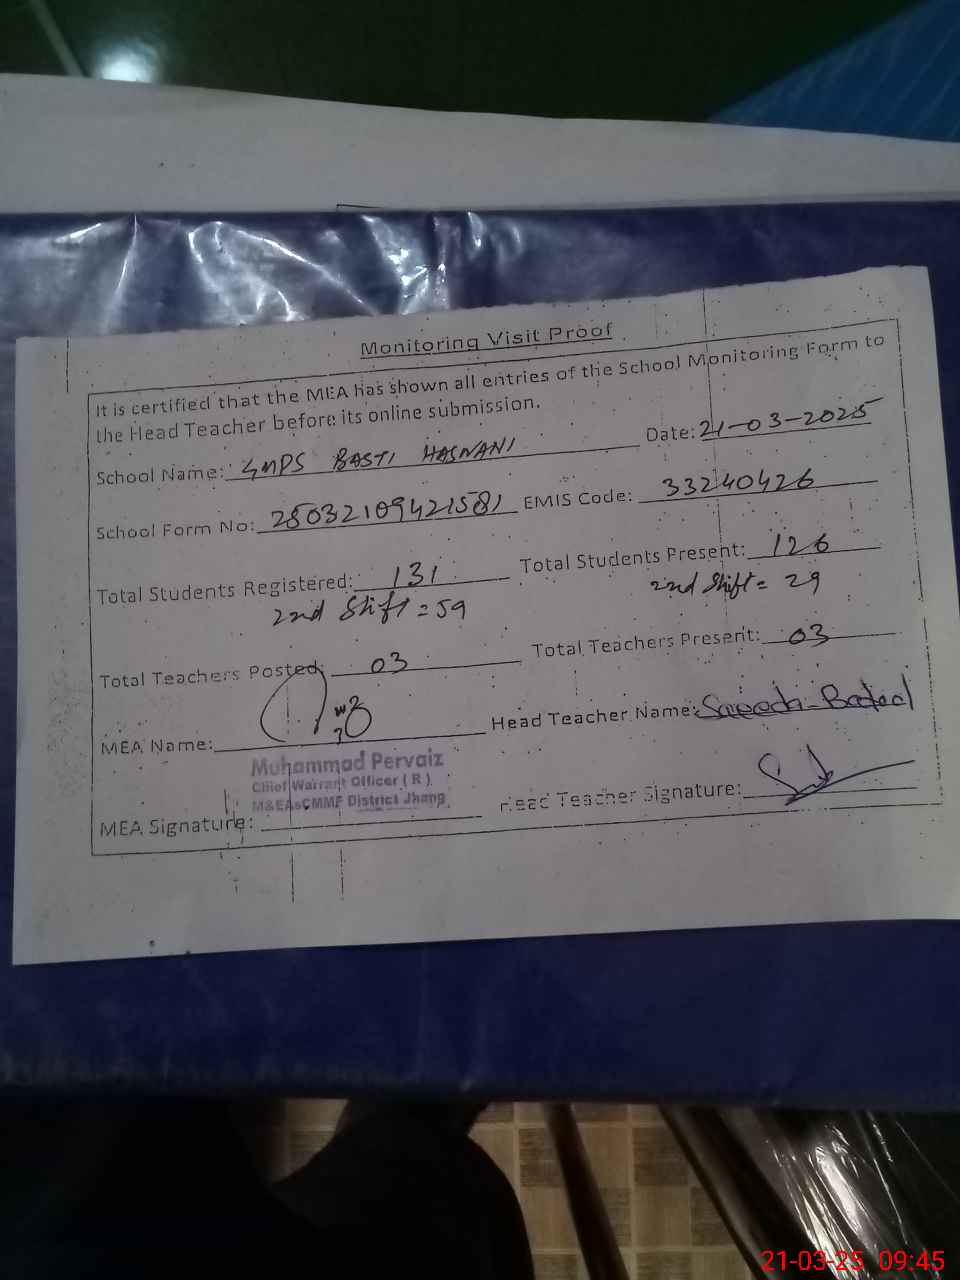 Monitoring Visit Proof
It is certified that the MEA has shown all entries of the School Monitoring Form to
the Head Teacher before its online submission.
School Name: GMPS BASTI HASNANI Date: 21-03-2025
School Form No: 28032109421581 EMIS Code: 33240426
Total Students Registered: 131 Total Students Present: 126
2nd Shift = 59 2nd Shift = 29
Total Teachers Posted: 03 Total Teachers Present: 03
MEA Name: Head Teacher Name: Saeeda
Muhammad Pervaiz
Chief Warrant Officer (R)
M&EAsCMMF District Jhang
MEA Signature: Head Teacher Signature:
21-03-25 09:45